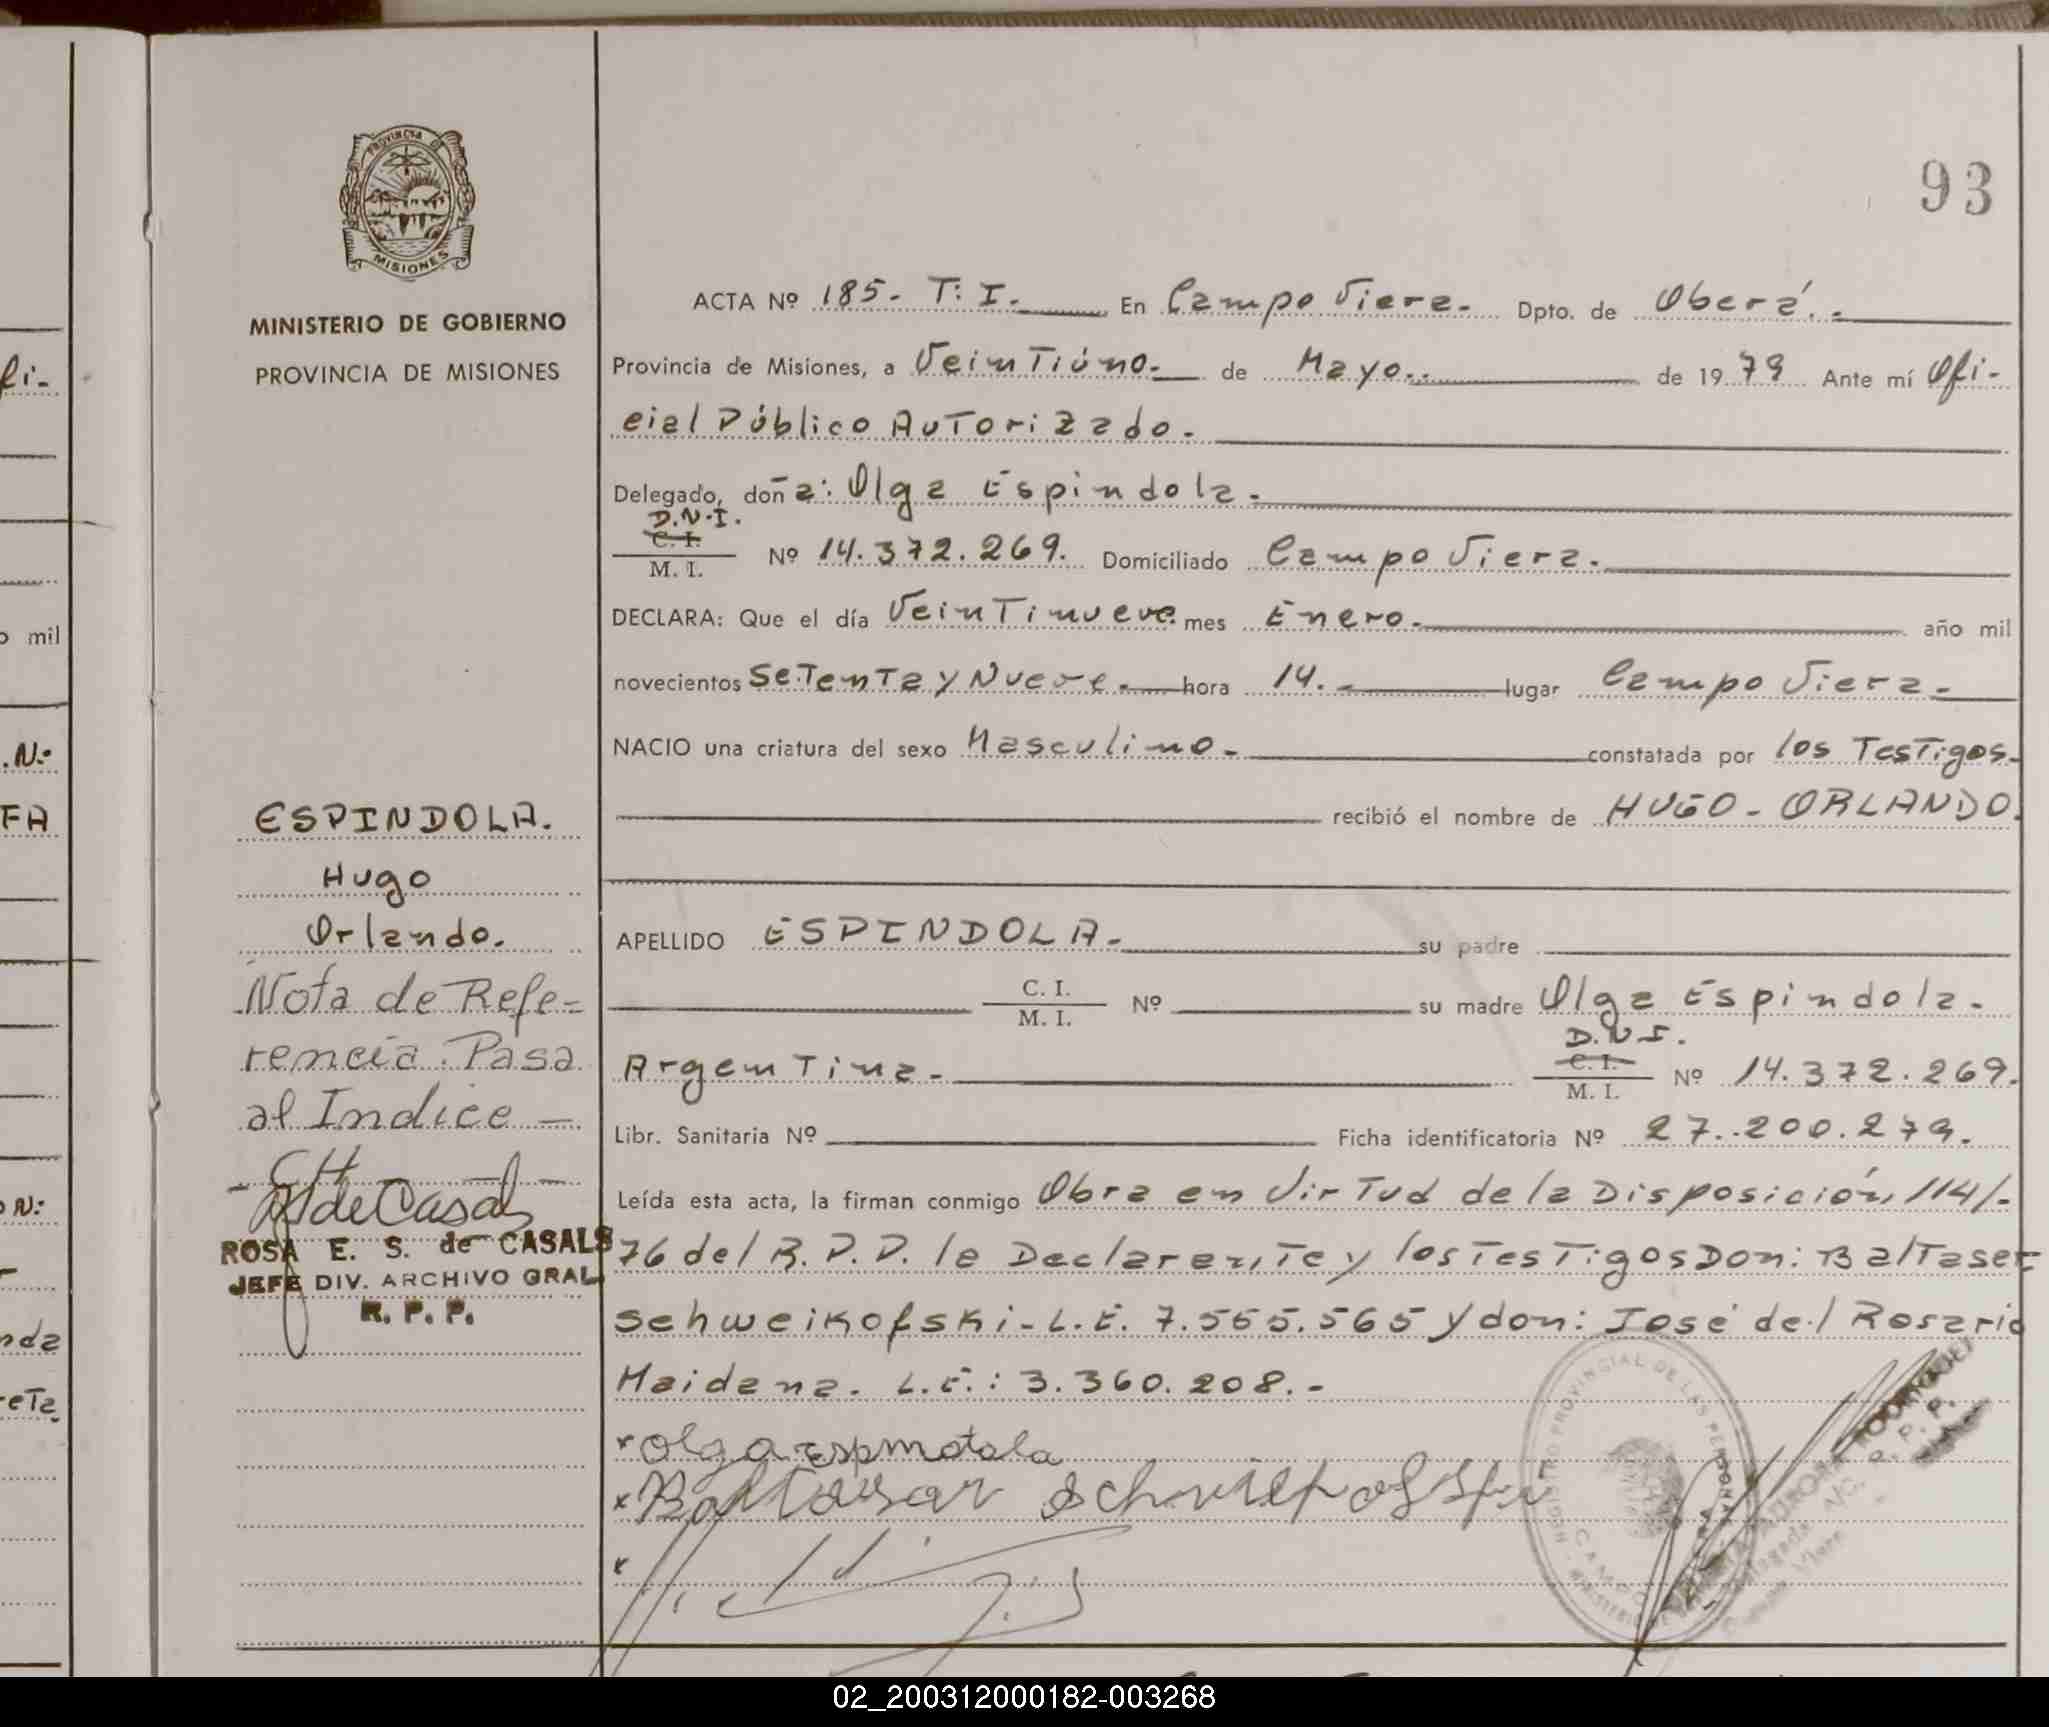 PROVINCIA DE
MISIONES
MINISTERIO DE GOBIERNO
PROVINCIA DE MISIONES
93
ACTA Nº 185.- T: I. En Campo Viera.- Dpto. de Oberá.-
Provincia de Misiones, a VeinTiúno.- de Mayo.- de 1979 Ante mí Ofi-
cial Público AuTorizado.-
Delegado, doña: Olga Espindola.-
D.N.I.
C. I.
M. I. Nº 14.372.269. Domiciliado Campo Viera.-
DECLARA: Que el día VeinTinueve mes Enero.- año mil
novecientos SeTenTa y Nueve.- hora 14.- lugar Campo Viera.-
NACIO una criatura del sexo Masculino.- constatada por los TesTigos.-
recibió el nombre de HUGO - ORLANDO.
APELLIDO ESPINDOLA.- su padre
C. I.
M. I. Nº su madre Olga Espindola.-
ArgenTina.- D.N.I.
C. I.
M. I. Nº 14.372.269.
Libr. Sanitaria Nº Ficha identificatoria Nº 27.200.279.
Leída esta acta, la firman conmigo Obra en VirTud de la Disposición, 114/-
76 del R.P.P. la Declarante y los TesTigos Don: BalTasar
Schweikofski - L.E. 7.555.565 y don: José del Rosario
Maidana. L.E.: 3.360.208.-
x olga espindola
x Baltasar
x
ESPINDOLA.
Hugo
Orlando.
Nota de Refe-
rencia. Pasa
al Indice -
ROSA E. S. de CASALS
JEFE DIV. ARCHIVO GRAL.
R. P. P.
REGISTRO PROVINCIAL DE LAS PERSONAS
CAMPO
li-
o mil
.N:
FA
N:
nda
eTa
02_200312000182-003268